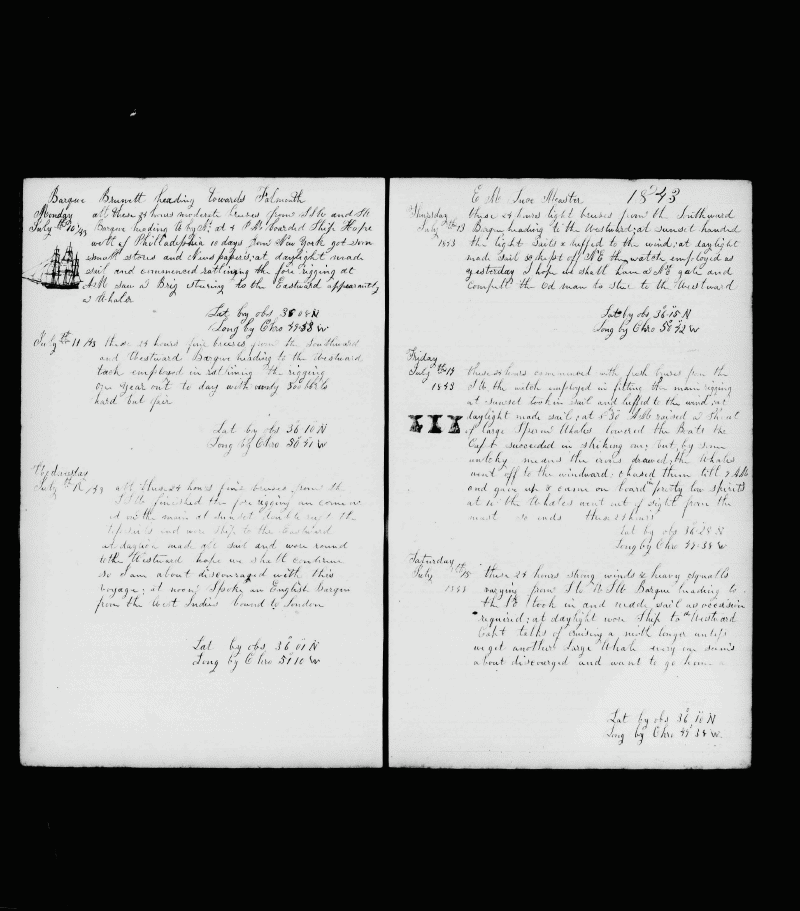 Barque Brunett heading towards Falmouth
Monday
July 10th /43
all these 24 hours moderate breezes from SSW and SW
Barque heading W by N; at 4 P.M. boarded Ship Hope
well of Philladelphia 10 days from New York got some
small stores and News papers; at daylight made
sail and commenced ratlinging the fore rigging at
AM saw a Brig stering to the Eastward appearantly
a Whaler
Lat by obs 36 04 N
Long by Chro 49 38 W
July 11th /43 these 24 hours fair breezes from the southward
and Westward Barque heading to the Westward
employed in ratlining the rigging
one year out to day with 800 bbls
hard but fair
Lat by obs 36 10 N
Long by Chro 50 41 W
Wednesday
July 12th /43 all these 24 hours fine breezes from the
SSW finished the fore rigging an commen
ed on the main at sunset double reeft the
topsails and wore ship to the Eastward
at daylight made all sail and wore round
to the Westward hope we shall continue
so I am about discouraged with this
voyage; at noon Spoke an English Barque
from the West Indies bound to London
Lat by obs 36 01 N
Long by Chro 51 10 W
1843
Thursday
July 13th
1843
these 24 hours light breezes from the Southward
Barque heading to the Westward; at sunset handed
the light sails & luffed to the wind; at daylight
made sail & kept off NE the watch employed as
yesterday I hope we shall have a NE gale and
compell the Od man to ster to the Westward
Lat by obs 36 15 N
Long by Chro 50 42 W
Friday
July 14th
1843
these 24 hours commenced with fresh breezes from the
SW the watch employed in fitting the main rigging
at sunset took in sail and luffed to the wind; at
daylight made sail; at 5 30 AM raised a
of large Sperm Whales lowered the Boats the
Capt succeeded in striking one; but by some
means the irons drawed; the Whales
went off to the windward; chased them till 7 AM
and gave up & came on board in pretty low spirits
at 10 the Whales went out of sight from the
mast so ends these 24 hours
Lat by obs 36 28 N
Long by Chro 49 38 W
Saturday
July 15th
1843
these 24 hours strong winds & heavy squalls
varying from SW to SSW Barque heading to
the SE took in and made sail as occasion
required; at daylight wore Ship to the Westward
Capt talks of cruising a month longer unless
we get another large Whale every one seems
about discourged and want to go home
Lat by obs 36 10 N
Long by Chro 49 38 W